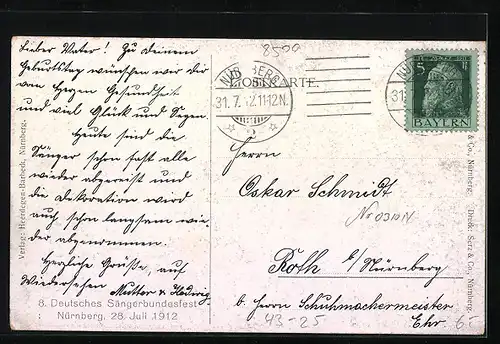 Lieber Vater! Zu Deinem
Geburtstag wünschen wir dir
von Herzen Gesundheit
und viel Glück und Segen.
Heute sind die
Sänger schon fast alle
wieder abgereist und
die Dekoration wird
auch schon langsam wie-
der abgenommen.
Herzliche Grüße, auf
Wiedersehen Mutter & Hedwig
8. Deutsches Sängerbundesfest
Nürnberg, 28. Juli 1912
Verlag: Heerdegen-Barbeck, Nürnberg.
8500
POSTKARTE.
NÜRNBERG
31.7.12.11-12N.
2
5
BAYERN
NÜ
31.
Herrn
Oskar Schmidt
No 0310N
Roth b/Nürnberg
b. Herrn Schuhmachermeister
Ehr.
43-25
6.-
& Co., Nürnberg. Druck: Serz & Co., Nürnberg.